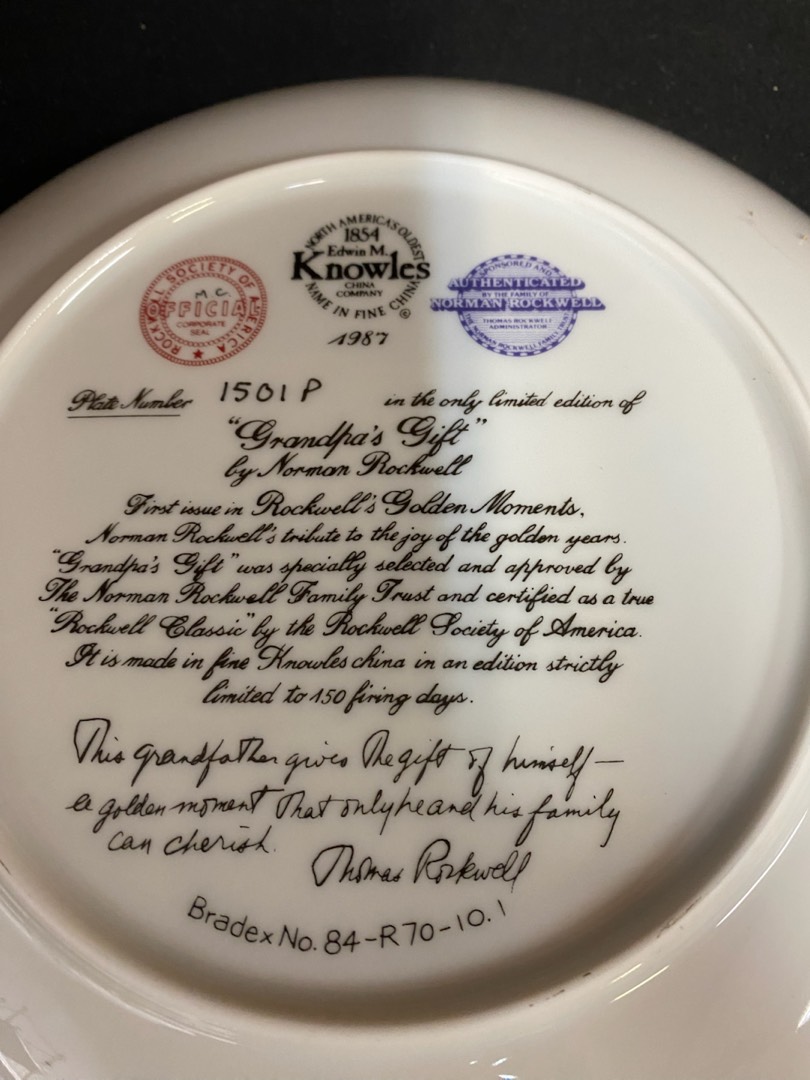 ROCKWELL SOCIETY OF AMERICA
M.C.
OFFICIAL
CORPORATE
SEAL
NORTH AMERICA'S OLDEST
1854
Edwin M.
Knowles
CHINA
COMPANY
NAME IN FINE CHINA
®
1987
SPONSORED AND
AUTHENTICATED
BY THE FAMILY OF
NORMAN ROCKWELL
THOMAS ROCKWELL
ADMINISTRATOR
NORMAN ROCKWELL FAMILY TRUST
Plate Number 1501P in the only limited edition of
"Grandpa's Gift"
by Norman Rockwell
First issue in Rockwell's Golden Moments,
Norman Rockwell's tribute to the joy of the golden years.
"Grandpa's Gift" was specially selected and approved by
The Norman Rockwell Family Trust and certified as a true
"Rockwell Classic" by the Rockwell Society of America.
It is made in fine Knowles china in an edition strictly
limited to 150 firing days.
This grandfather gives the gift of himself—
a golden moment that only he and his family
can cherish.
Thomas Rockwell
Bradex No. 84-R70-10.1